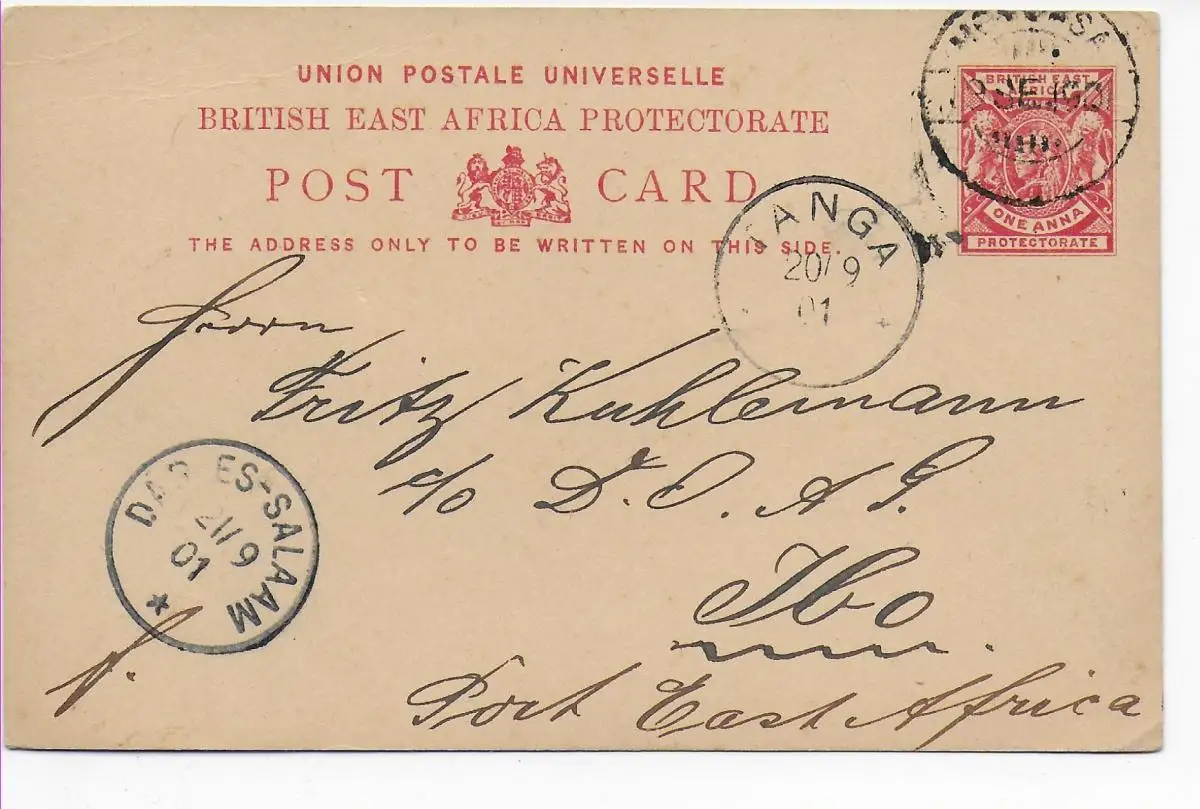 UNION POSTALE UNIVERSELLE
BRITISH EAST AFRICA PROTECTORATE
POST CARD
THE ADDRESS ONLY TO BE WRITTEN ON THIS SIDE.
BRITISH EAST
AFRICA
ONE ANNA
PROTECTORATE
MOMBASA
TANGA
20/9
01
Herrn
Fritz Kuhlemann
c/o D. O. A. G.
DAR ES-SALAAM
21/9
01
Ibo
Port East Africa